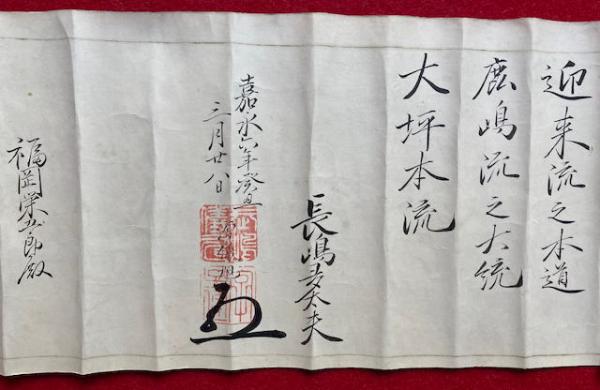 迎来流之本道
鹿嶋流之大統
大坪本流
長嶋孝太夫
嘉永六年癸丑
三月廿八日
福岡栄五郎殿